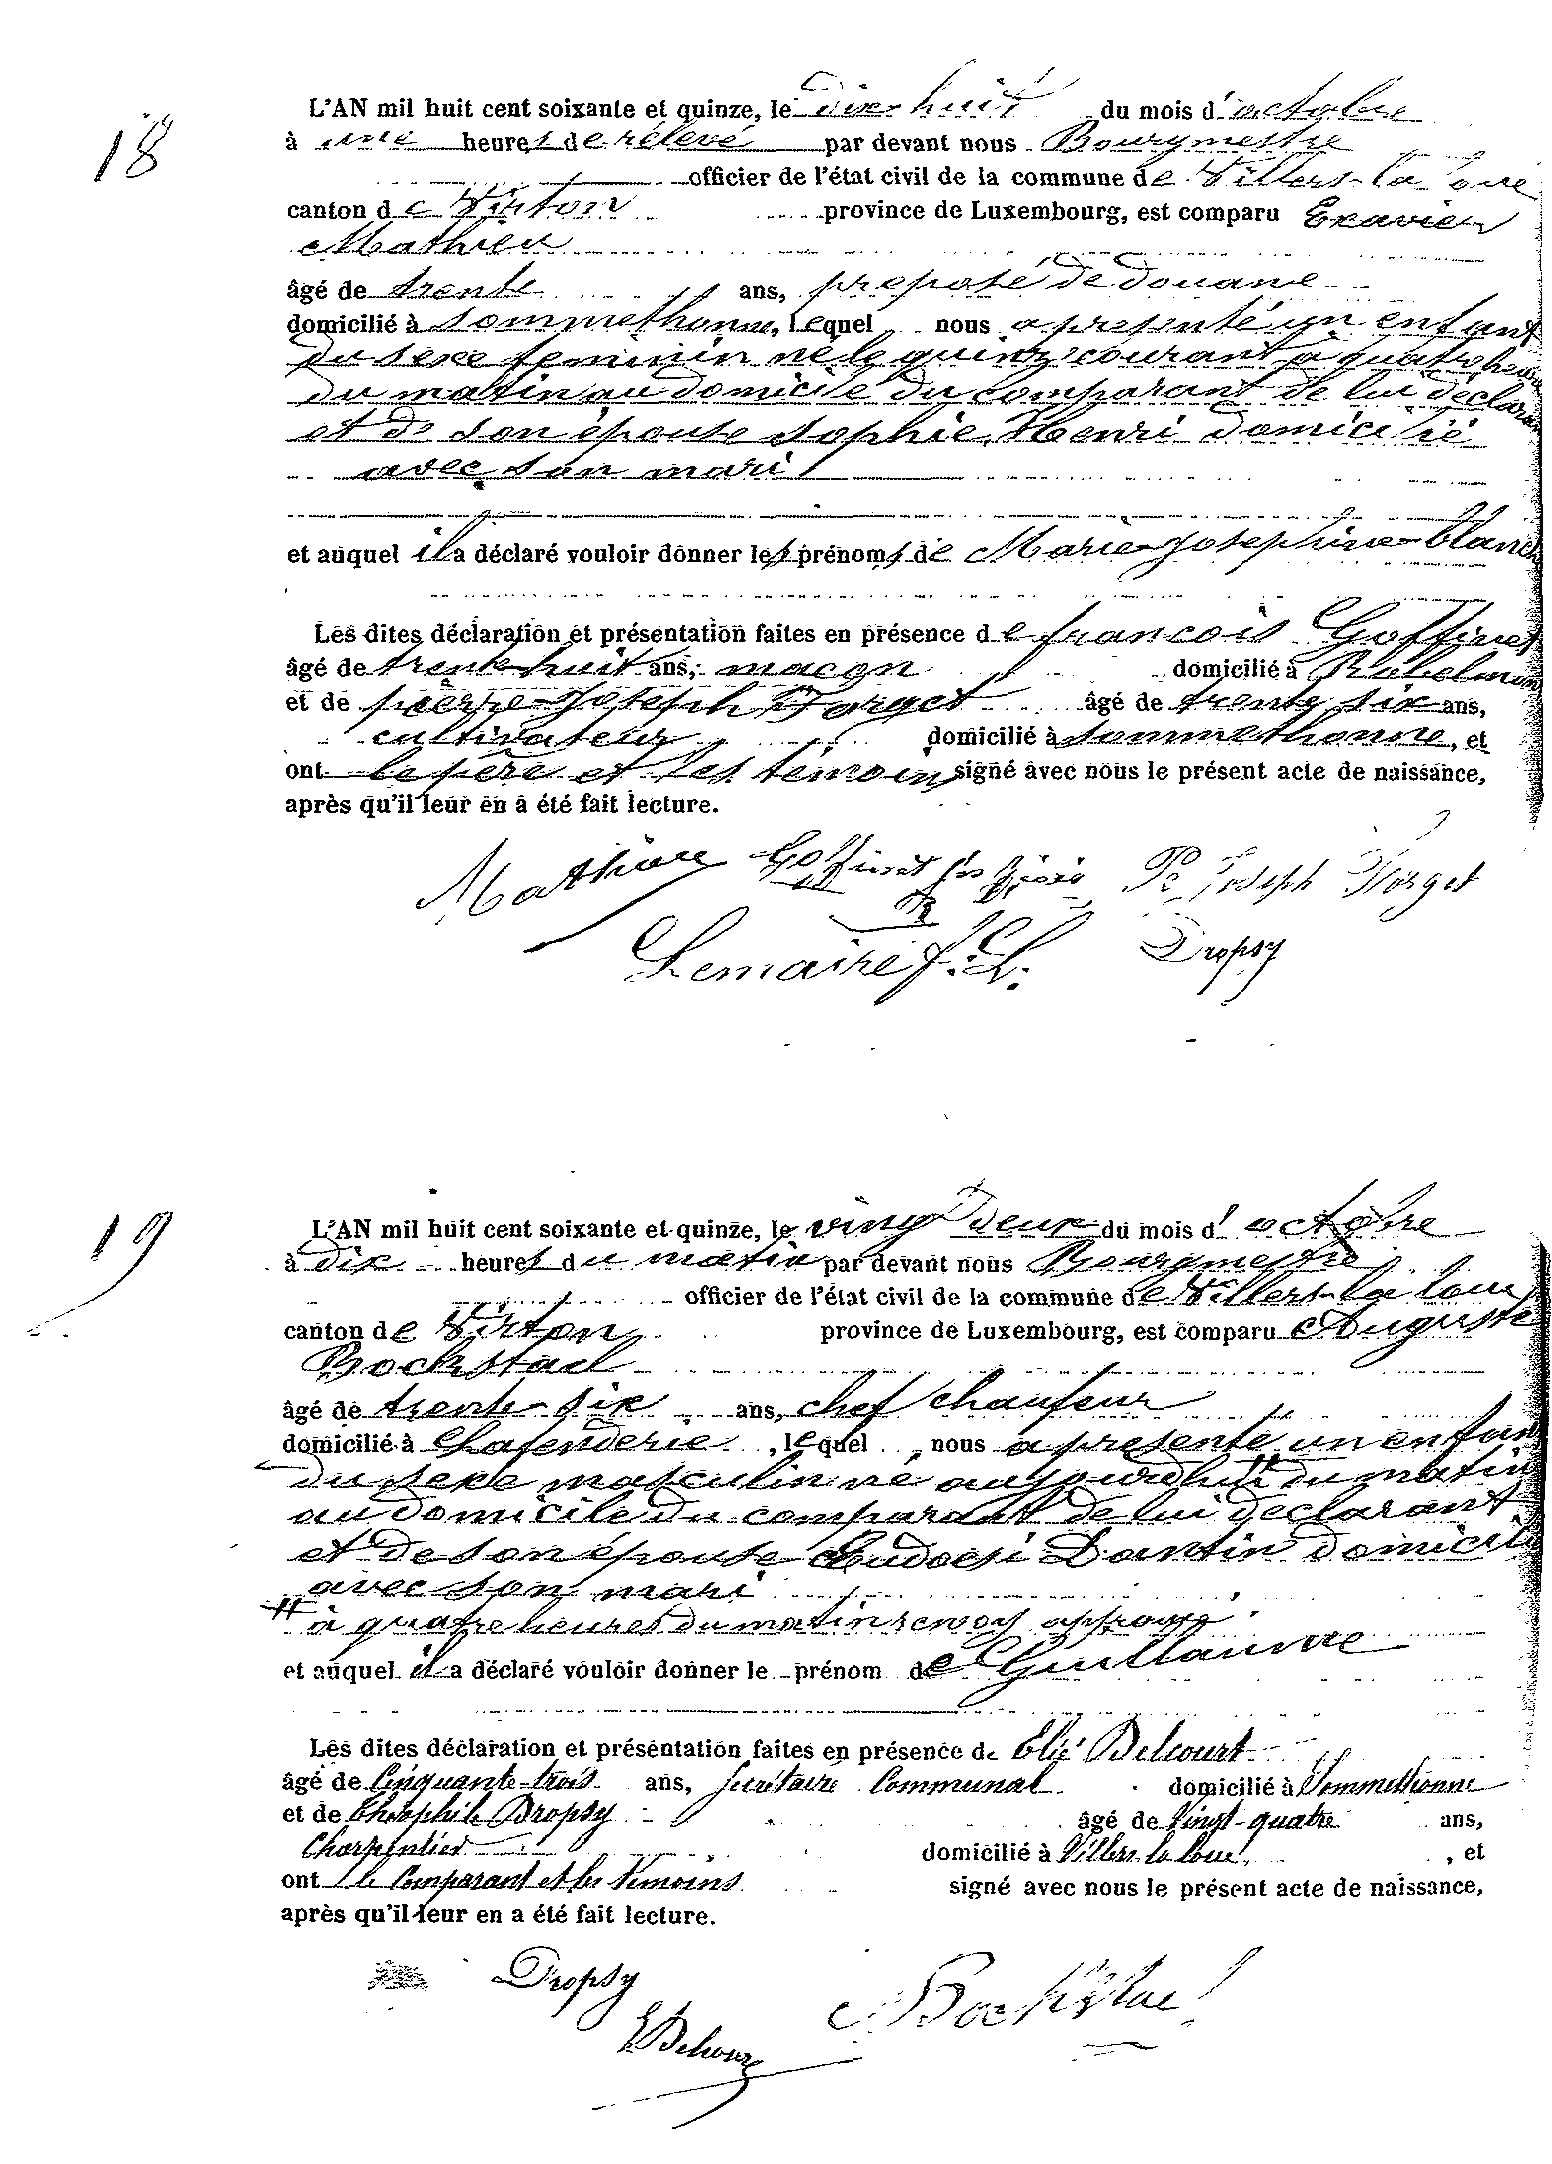 18
L'AN mil huit cent soixante et quinze, le dix huit du mois d'octobre
à une heures de rélevé par devant nous Bourgmestre
officier de l'état civil de la commune de Villers-la loue
canton de Virton province de Luxembourg, est comparu Exavier
Mathieu
âgé de trente ans, préposé de douane
domicilié à Sommethonne, lequel nous a présenté un enfant
du sexe feminin né le quinze courant à quatre heures
du matin au domicile du comparant de lui déclarant
et de son épouse Sophie Henri domicilié
avec son mari
et auquel il a déclaré vouloir donner les prénoms de Marie-Josephine-blanche
Les dites déclaration et présentation faites en présence de francois Goffinet
âgé de trente huit ans, maçon domicilié à Robelmont
et de pierre-Joseph Forget âgé de trente six ans,
cultivateur domicilié à Sommethonne, et
ont le père et les témoins signé avec nous le présent acte de naissance,
après qu'il leur en a été fait lecture.
Mathieu Goffinet Pre Joseph Forget
Lemaire J. L. Dropsy
19
L'AN mil huit cent soixante et quinze, le vingt deux du mois d'octobre
à dix heures du matin par devant nous Bourgmestre
officier de l'état civil de la commune de Villers-la loue
canton de Virton province de Luxembourg, est comparu Auguste
Bockstael
âgé de trente-six ans, chef chaufeur
domicilié à Lafenderie, lequel nous a présenté un enfant
du sexe masculin né aujourd'hui # du matin
au domicile du comparant de lui declarant
et de son épouse Dantin domicilié
avec son mari
# à quatre heures du matin renvoy approuvé
et auquel il a déclaré vouloir donner le prénom de Guillaume
Les dites déclaration et présentation faites en présence de Elie Delcourt
âgé de Cinquante-trois ans, Secrétaire Communal domicilié à Sommethonne
et de Théophile Dropsy âgé de Vingt-quatre ans,
Charpentier domicilié à Villers-la loue, et
ont le Comparant et les témoins signé avec nous le présent acte de naissance,
après qu'il leur en a été fait lecture.
Dropsy Bockstael
E Delcourt